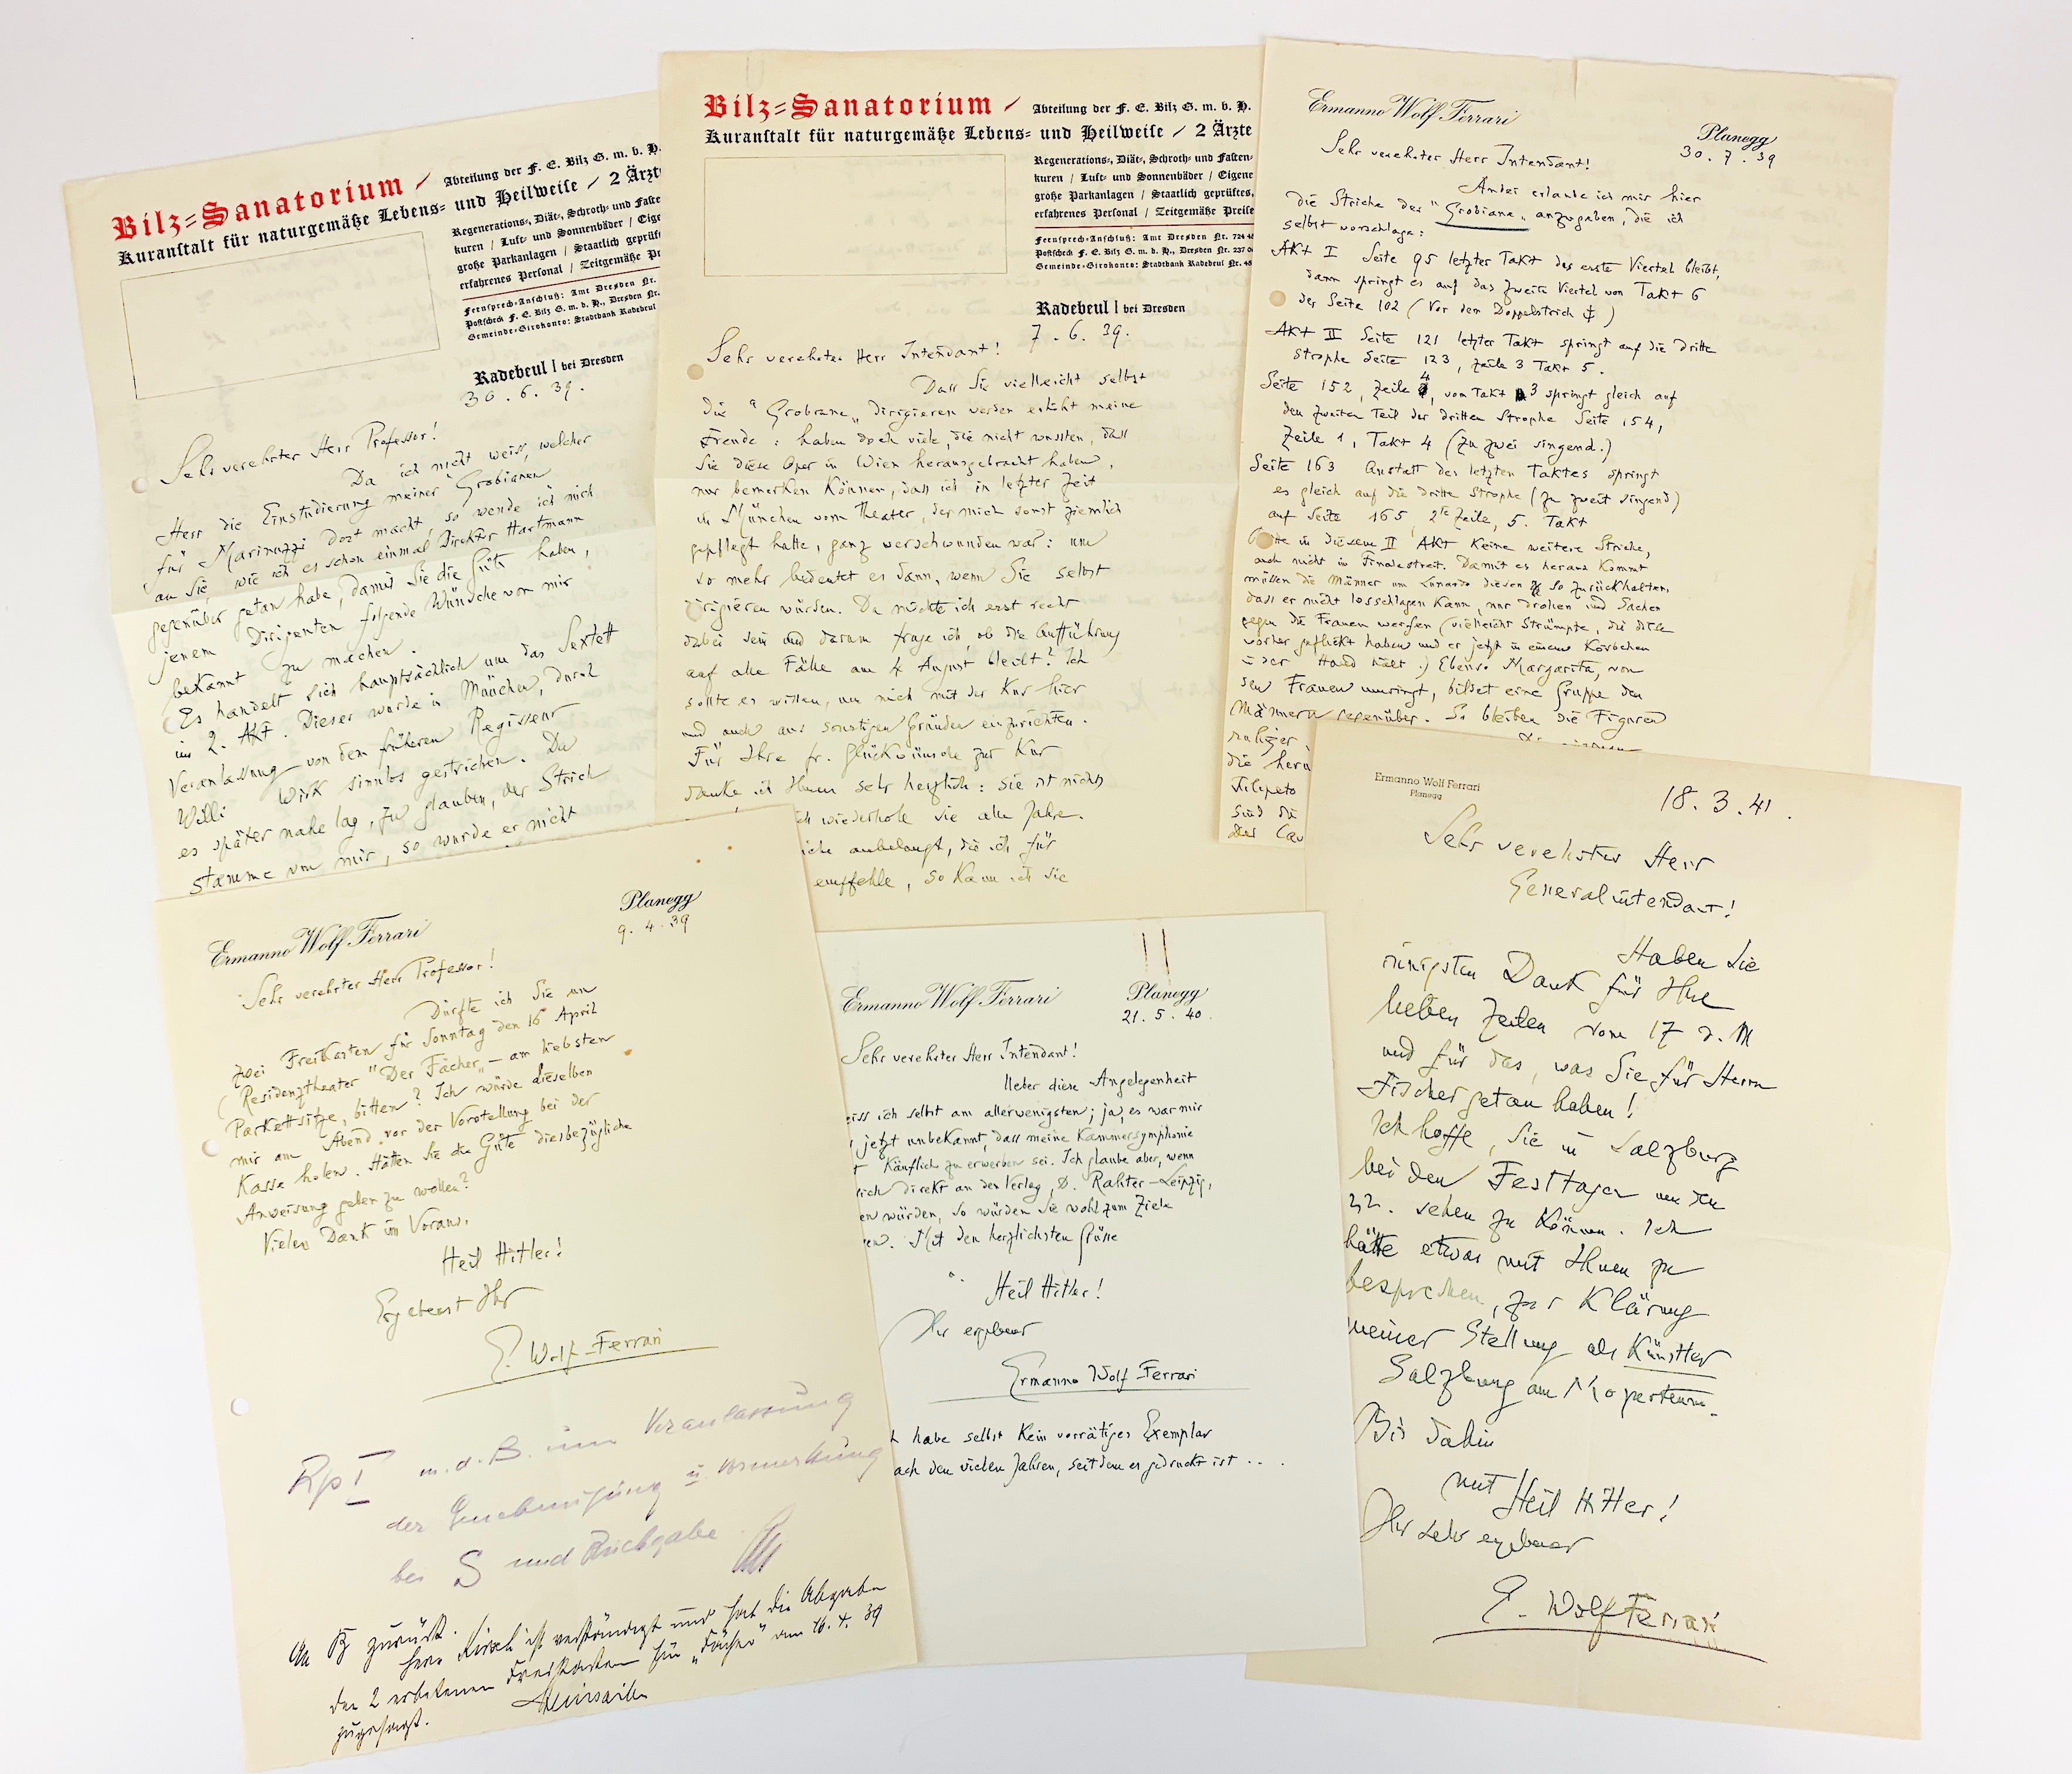 Bilz=Sanatorium / Abteilung der F. E. Bilz G. m. b. H.
Kuranstalt für naturgemäße Lebens= und Heilweise / 2 Ärzt
Regenerations=, Diät=, Schroth= und Faste
kuren / Luft= und Sonnenbäder / Eige
große Parkanlagen / Staatlich geprüft
erfahrenes Personal / Zeitgemäße Pr
Fernsprech=Anschluß: Amt Dresden Nr.
Postscheck F. E. Bilz G. m. b. H., Dresden Nr.
Gemeinde=Girokonto: Stadtbank Radebeul
Radebeul I bei Dresden
30. 6. 39.
Sehr verehrter Herr Professor!
Da ich nicht weiss, welcher
Herr die Einstudierung meiner "Grobianen"
für Marinuzzi dort macht, so wende ich mich
an Sie, wie ich es schon einmal Direktor Hartmann
gegenüber getan habe, damit Sie die Güte haben,
jenem Dirigenten folgende Wünsche von mir
bekannt zu machen.
Es handelt sich hauptsächlich um das Sextett
im 2. Akt. Dieser wurde in München, durch
Veranlassung von dem früheren Regisseur
Willi Wirk sinnlos gestrichen. Da
es später nahe lag, zu glauben, der Strich
stamme von mir, so wurde er nicht
Bilz=Sanatorium / Abteilung der F. E. Bilz G. m. b. H.
Kuranstalt für naturgemäße Lebens= und Heilweise / 2 Ärzte
Regenerations=, Diät=, Schroth= und Fasten=
kuren / Luft= und Sonnenbäder / Eigene
große Parkanlagen / Staatlich geprüftes,
erfahrenes Personal / Zeitgemäße Preise
Fernsprech=Anschluß: Amt Dresden Nr. 724
Postscheck F. E. Bilz G. m. b. H., Dresden Nr. 237
Gemeinde=Girokonto: Stadtbank Radebeul Nr. 45
Radebeul I bei Dresden
7. 6. 39.
Sehr verehrter Herr Intendant!
Dass Sie vielleicht selbst
die "Grobiane" dirigieren werden erhöht meine
Freude: haben doch viele, die nicht wussten, dass
Sie diese Oper in Wien herausgebracht haben,
nur bemerken können, dass ich in letzter Zeit
in München vom Theater, der mich sonst ziemlich
gepflegt hatte, ganz verschwunden war: um
so mehr bedeutet es dann, wenn Sie selbst
dirigieren würden. Da möchte ich erst recht
dabei sein und darum frage ich, ob die Aufführung
auf alle Fälle am 4 August bleibt? Ich
sollte es wissen, um mich mit der Kur hier
und auch aus sonstigen Gründen einzurichten.
Für Ihre fr. Glückwünsche zur Kur
danke ich Ihnen sehr herzlich: sie ist nichts
ich wiederhole sie alle Jahre.
iche anbelangt, die ich für
empfehle, so kann ich sie
Ermanno Wolf Ferrari
Planegg
30. 7. 39
Sehr verehrter Herr Intendant!
Anbei erlaube ich mir hier
die Striche der "Grobiane" anzugeben, die ich
selbst vorschlage:
Akt I Seite 95 letzter Takt das erste Viertel bleibt,
dann springt es auf das zweite Viertel von Takt 6
der Seite 102 (Vor dem Doppelstrich)
Akt II Seite 121 letzter Takt springt auf die dritte
Strophe Seite 123, Zeile 3 Takt 5.
Seite 152, Zeile 4, vom Takt 3 springt gleich auf
den zweiten Teil der dritten Strophe Seite 154,
Zeile 1, Takt 4 (zu zwei singend.)
Seite 163 Anstatt des letzten Taktes springt
es gleich auf die dritte Strophe (zu zweit singend)
auf Seite 165, 2te Zeile, 5. Takt
Bitte in diesem II Akt keine weitere Striche,
auch nicht im Finalestreit. Damit es heraus kommt
müssen die Männer um Lunardo diesen so zurückhalten,
dass er nicht losschlagen kann, nur drohen und Sachen
gegen die Frauen werfen (vielleicht Strümpfe, die diese
vorher geflickt haben und er jetzt in einem Körbchen
in der Hand hält.) Ebenso Margarita, von
den Frauen umringt, bildet eine Gruppe den
Männern gegenüber. So bleiben die Figuren
ruhiger
die hera
Filipeto
sind die
Ermanno Wolf Ferrari
Planegg
9. 4. 39
Sehr verehrter Herr Professor!
Dürfte ich Sie um
zwei Freikarten für Sonntag den 16 April
(Residenztheater "Der Fächer" – am liebsten
Parkettsitze, bitten? Ich würde dieselben
mir am Abend vor der Vorstellung bei der
Kasse holen. Hätten Sie die Güte diesbezügliche
Anweisung geben zu wollen?
Vielen Dank im Voraus.
Heil Hitler!
Ergebenst Ihr
E. Wolf-Ferrari
Rp I m. d. B. um Veranlassung
der Genehmigung u. Vormerkung
bei S und Rückgabe
An zurück.
Herr ist verständigt und hat die Abgabe
der 2 erbetenen Freikarten für „Fächer" am 16. 4. 39
zugesagt.
Ermanno Wolf Ferrari
Planegg
21. 5. 40.
Sehr verehrter Herr Intendant!
Ueber diese Angelegenheit
eiss ich selbst am allerwenigsten; ja, es war mir
jetzt unbekannt, dass meine Kammersymphonie
käuflich zu erwerben sei. Ich glaube aber, wenn
sich direkt an den Verlag, D. Rahter–Leipzig,
en würden, so würden Sie wohl zum Ziele
en. Mit den herzlichsten Grüsse
Heil Hitler!
Ihr ergebener
Ermanno Wolf Ferrari
h habe selbst kein vorrätiges Exemplar
ach den vielen Jahren, seitdem es gedruckt ist ...
Ermanno Wolf Ferrari
Planegg
18. 3. 41.
Sehr verehrter Herr
Generalintendant!
Haben Sie
innigsten Dank für Ihre
lieben Zeilen vom 17 d. M
und für das, was Sie für Herrn
Fischer getan haben!
Ich hoffe, Sie in Salzburg
bei den Festtagen um den
22. sehen zu können. Ich
hätte etwas mit Ihnen zu
besprechen, zur Klärung
meiner Stellung als Künstler
Salzburg am Mozarteum.
Bis dahin
mit Heil Hitler!
Ihr sehr ergebener
E. Wolf Ferrari